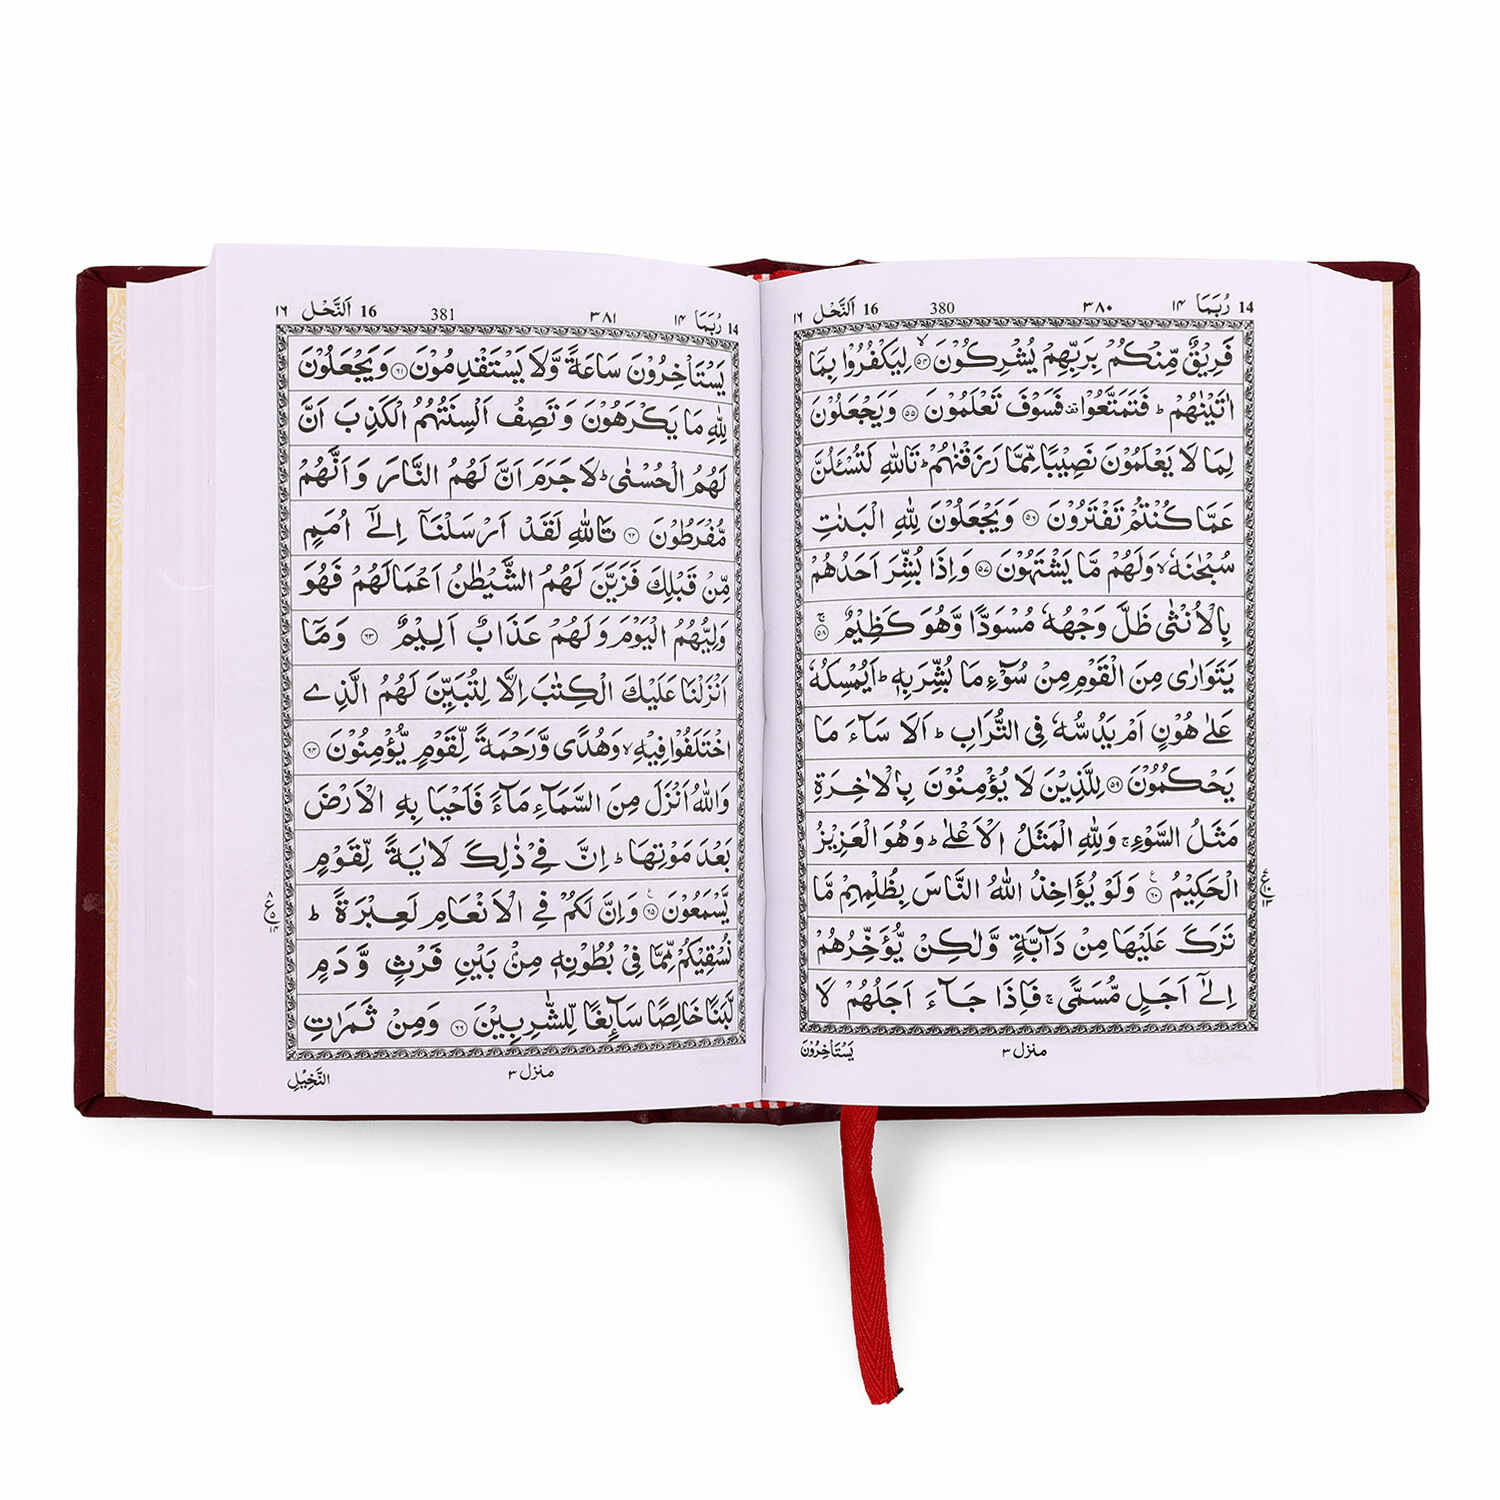 14 رُبَمَا ۱۴ ۳۸۰ 380 16 اَلنَّحْل ۱۶
فَرِيْقٌ مِّنْكُمْ بِرَبِّهِمْ يُشْرِكُوْنَ ۙ۵۴ لِيَكْفُرُوْا بِمَآ
اٰتَيْنٰهُمْ ؕ فَتَمَتَّعُوْا ۫ فَسَوْفَ تَعْلَمُوْنَ ۵۵ وَيَجْعَلُوْنَ
لِمَا لَا يَعْلَمُوْنَ نَصِيْبًا مِّمَّا رَزَقْنٰهُمْ ؕ تَاللّٰهِ لَتُسْـَٔلُنَّ
عَمَّا كُنْتُمْ تَفْتَرُوْنَ ۵۶ وَيَجْعَلُوْنَ لِلّٰهِ الْبَنٰتِ
سُبْحٰنَهٗ ۙ وَلَهُمْ مَّا يَشْتَهُوْنَ ۵۷ وَاِذَا بُشِّرَ اَحَدُهُمْ
بِالْاُنْثٰى ظَلَّ وَجْهُهٗ مُسْوَدًّا وَّهُوَ كَظِيْمٌ ۚ۵۸
يَتَوَارٰى مِنَ الْقَوْمِ مِنْ سُوْٓءِ مَا بُشِّرَ بِهٖ ؕ اَيُمْسِكُهٗ
عَلٰى هُوْنٍ اَمْ يَدُسُّهٗ فِى التُّرَابِ ؕ اَلَا سَآءَ مَا
يَحْكُمُوْنَ ۵۹ لِلَّذِيْنَ لَا يُؤْمِنُوْنَ بِالْاٰخِرَةِ
مَثَلُ السَّوْءِ ۚ وَلِلّٰهِ الْمَثَلُ الْاَعْلٰى ؕ وَهُوَ الْعَزِيْزُ
الْحَكِيْمُ ۶۰ وَلَوْ يُؤَاخِذُ اللّٰهُ النَّاسَ بِظُلْمِهِمْ مَّا
تَرَكَ عَلَيْهَا مِنْ دَآبَّةٍ وَّلٰكِنْ يُّؤَخِّرُهُمْ
اِلٰٓى اَجَلٍ مُّسَمًّى ۚ فَاِذَا جَآءَ اَجَلُهُمْ لَا
منزل ۳ يَسْتَاْخِرُوْنَ
14 رُبَمَا ۱۴ ۳۸۱ 381 16 اَلنَّحْل ۱۶
يَسْتَاْخِرُوْنَ سَاعَةً وَّلَا يَسْتَقْدِمُوْنَ ۶۱ وَيَجْعَلُوْنَ
لِلّٰهِ مَا يَكْرَهُوْنَ وَتَصِفُ اَلْسِنَتُهُمُ الْكَذِبَ اَنَّ
لَهُمُ الْحُسْنٰى ؕ لَا جَرَمَ اَنَّ لَهُمُ النَّارَ وَاَنَّهُمْ
مُّفْرَطُوْنَ ۶۲ تَاللّٰهِ لَقَدْ اَرْسَلْنَآ اِلٰٓى اُمَمٍ
مِّنْ قَبْلِكَ فَزَيَّنَ لَهُمُ الشَّيْطٰنُ اَعْمَالَهُمْ فَهُوَ
وَلِيُّهُمُ الْيَوْمَ وَلَهُمْ عَذَابٌ اَلِيْمٌ ۶۳ وَمَآ
اَنْزَلْنَا عَلَيْكَ الْكِتٰبَ اِلَّا لِتُبَيِّنَ لَهُمُ الَّذِى
اخْتَلَفُوْا فِيْهِ ۙ وَهُدًى وَّرَحْمَةً لِّقَوْمٍ يُّؤْمِنُوْنَ ۶۴
وَاللّٰهُ اَنْزَلَ مِنَ السَّمَآءِ مَآءً فَاَحْيَا بِهِ الْاَرْضَ
بَعْدَ مَوْتِهَا ؕ اِنَّ فِيْ ذٰلِكَ لَاٰيَةً لِّقَوْمٍ
يَّسْمَعُوْنَ ۶۵ وَاِنَّ لَكُمْ فِى الْاَنْعَامِ لَعِبْرَةً ؕ
نُسْقِيْكُمْ مِّمَّا فِيْ بُطُوْنِهٖ مِنْۢ بَيْنِ فَرْثٍ وَّدَمٍ
لَّبَنًا خَالِصًا سَآئِغًا لِّلشّٰرِبِيْنَ ۶۶ وَمِنْ ثَمَرٰتِ
منزل ۳ النَّخِيْلِ